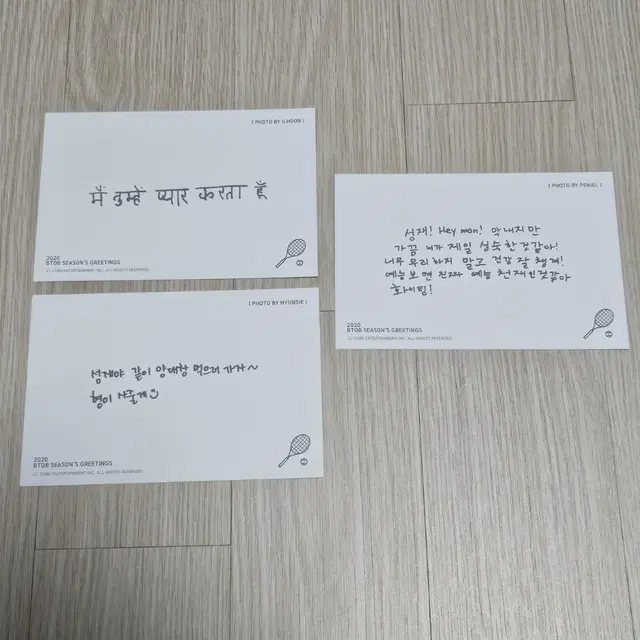 [ PHOTO BY ILHOON ]
मैं तुम्हें प्यार करता हूँ
2020
BTOB SEASON'S GREETINGS
(C) CUBE ENTERTAINMENT INC. ALL RIGHTS RESERVED.
[ PHOTO BY HYUNSIK ]
성재야 같이 양대창 먹으러 가자~
형이 사줄게
2020
BTOB SEASON'S GREETINGS
(C) CUBE ENTERTAINMENT INC. ALL RIGHTS RESERVED.
[ PHOTO BY PENIEL ]
성재! Hey man! 막내지만
가끔 네가 제일 성숙한것같아!
너무 무리하지 말고 건강 잘 챙겨!
예능보면 진짜 예능 천재인것같아
화이팅!
2020
BTOB SEASON'S GREETINGS
(C) CUBE ENTERTAINMENT INC. ALL RIGHTS RESERVED.